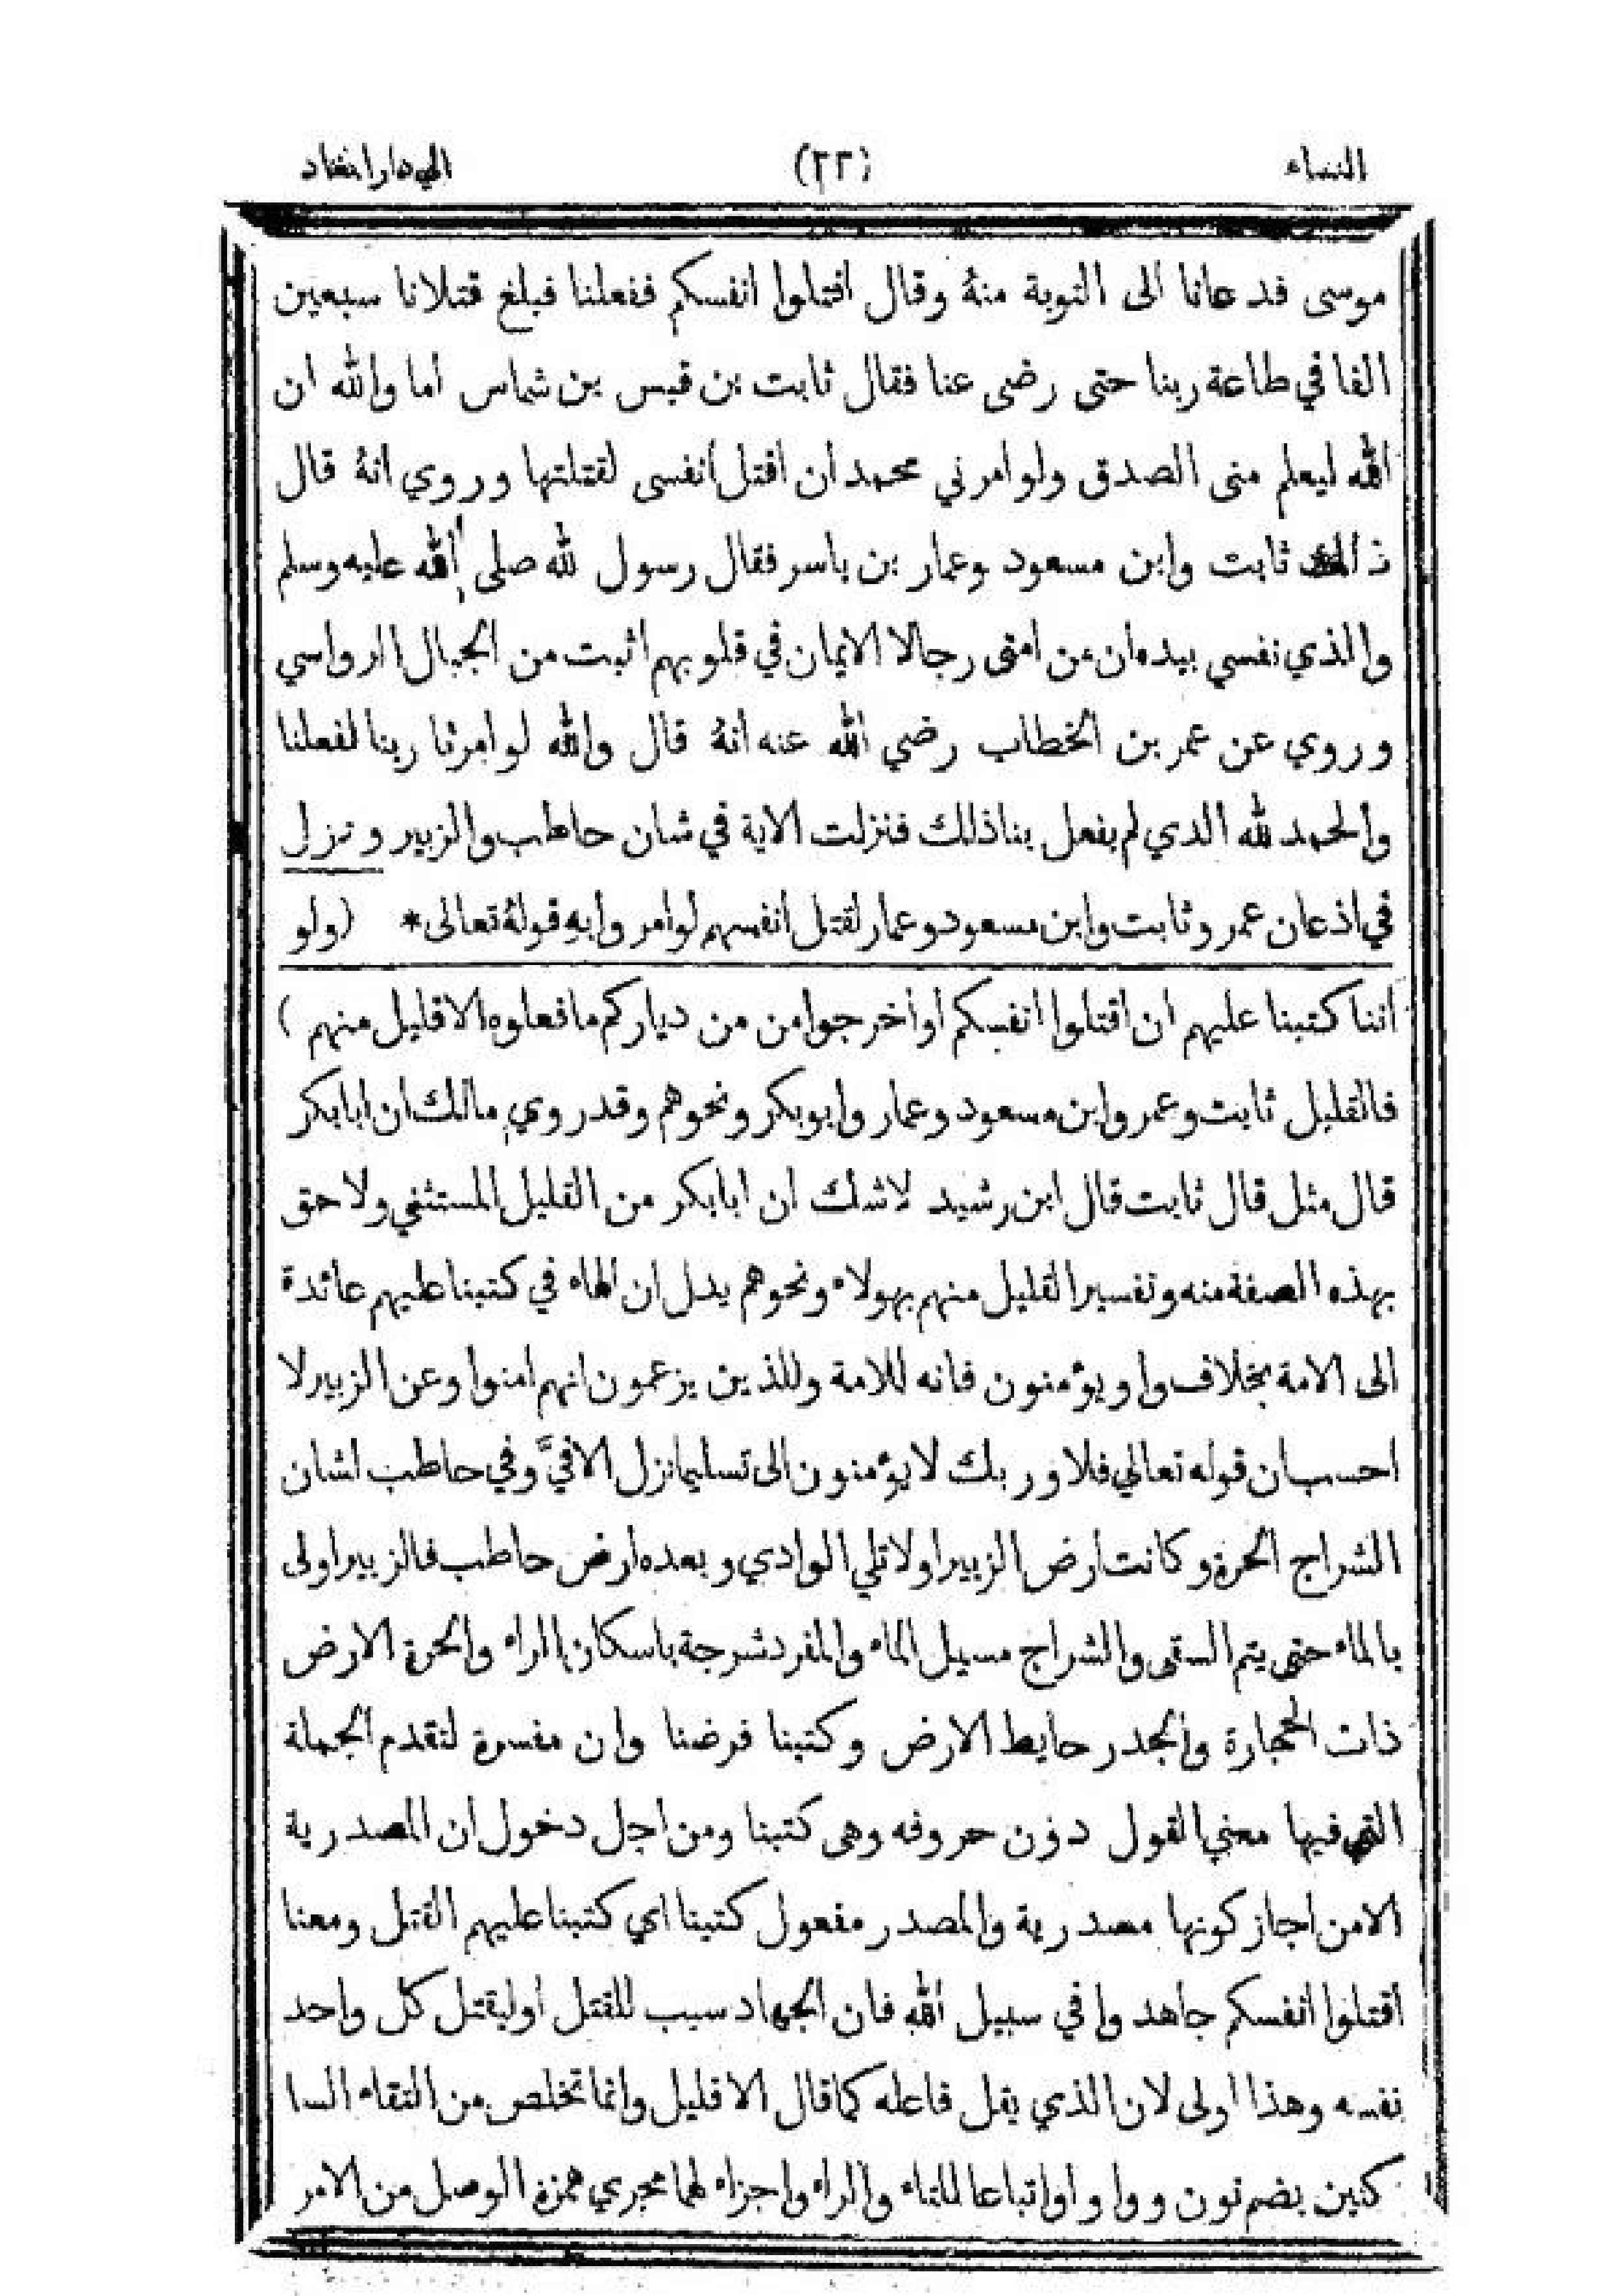 النساء (٢٢) الي دار
موسى فدعانا الى التوبة منهُ وقال اقتلوا انفسكم ففعلنا فبلغ قتلانا سبعين
الفا في طاعة ربنا حتى رضى عنا فقال ثابت بن قيس بن شماس أما والله ان
الله ليعلم منى الصدق ولو امرني محمد ان اقتل أنفسى لقتلتها وروي انهُ قال
ذالك ثابت وابن مسعود وعمار بن ياسر فقال رسول لله صلى الله عليه وسلم
والذي نفسي بيده ان من امتى رجالا الايمان في قلوبهم اثبت من الجبال الرواسي
وروي عن عمر بن الخطاب رضي الله عنه انهُ قال والله لو امرنا ربنا لفعلنا
والحمد لله الذي لم يفعل بنا ذلك فنزلت الاية في شان حاطب والزبير ونزل
في اذعان عمر وثابت وابن مسعود وعمار لقتل انفسهم لو أمر وا بهِ قولهُ تعالى* (ولو
أننا كتبنا عليهم ان اقتلوا انفسكم أو أخرجوا من من دياركم ما فعلوه الا قليل منهم)
فالقليل ثابت وعمر وابن مسعود وعمار وابو بكر ونحوهم وقد روي مالك ان ابا بكر
قال مثل قال ثابت قال ابن رشيد لاشك ان ابا بكر من القليل المستثني ولا حق
بهذه الصفة منه وتفسير القليل منهم بهولاء ونحوهم يدل ان الهاء في كتبنا عليهم عائدة
الى الامة بخلاف واو يؤمنون فانه للامة وللذين يزعمون انهم امنوا وعن الزبير لا
احسب ان قوله تعالي فلا وربك لا يؤمنون الى تسليما نزل الا فيَّ وفي حاطب لشان
الشراج الحرة وكانت أرض الزبير اولا تلي الوادي وبعده ارض حاطب فالزبير اولى
بالماء حتى يتم السقى والشراج مسيل الماء والمفرد شرجة باسكان الراء والحرة الارض
ذات الحجارة والجدر حايط الارض وكتبنا فرضنا وان مفسرة لتقدم الجملة
التي فيها معني القول دون حروفه وهى كتبنا ومن اجل دخول ان المصدرية
الامن اجاز كونها مصدرية والمصدر مفعول كتبنا اي كتبنا عليهم القتل ومعنا
اقتلوا انفسكم جاهدوا في سبيل الله فان الجهاد سبب للقتل أو ليقتل كل واحد
نفسه وهذا اولى لان الذي يقل فاعله كما قال الا قليل وانما تخلص من التقاء السا
كنين بضم نون وواو او اتباعا للتاء والراء واجزاء لهما مجري همزة الوصل من الامر